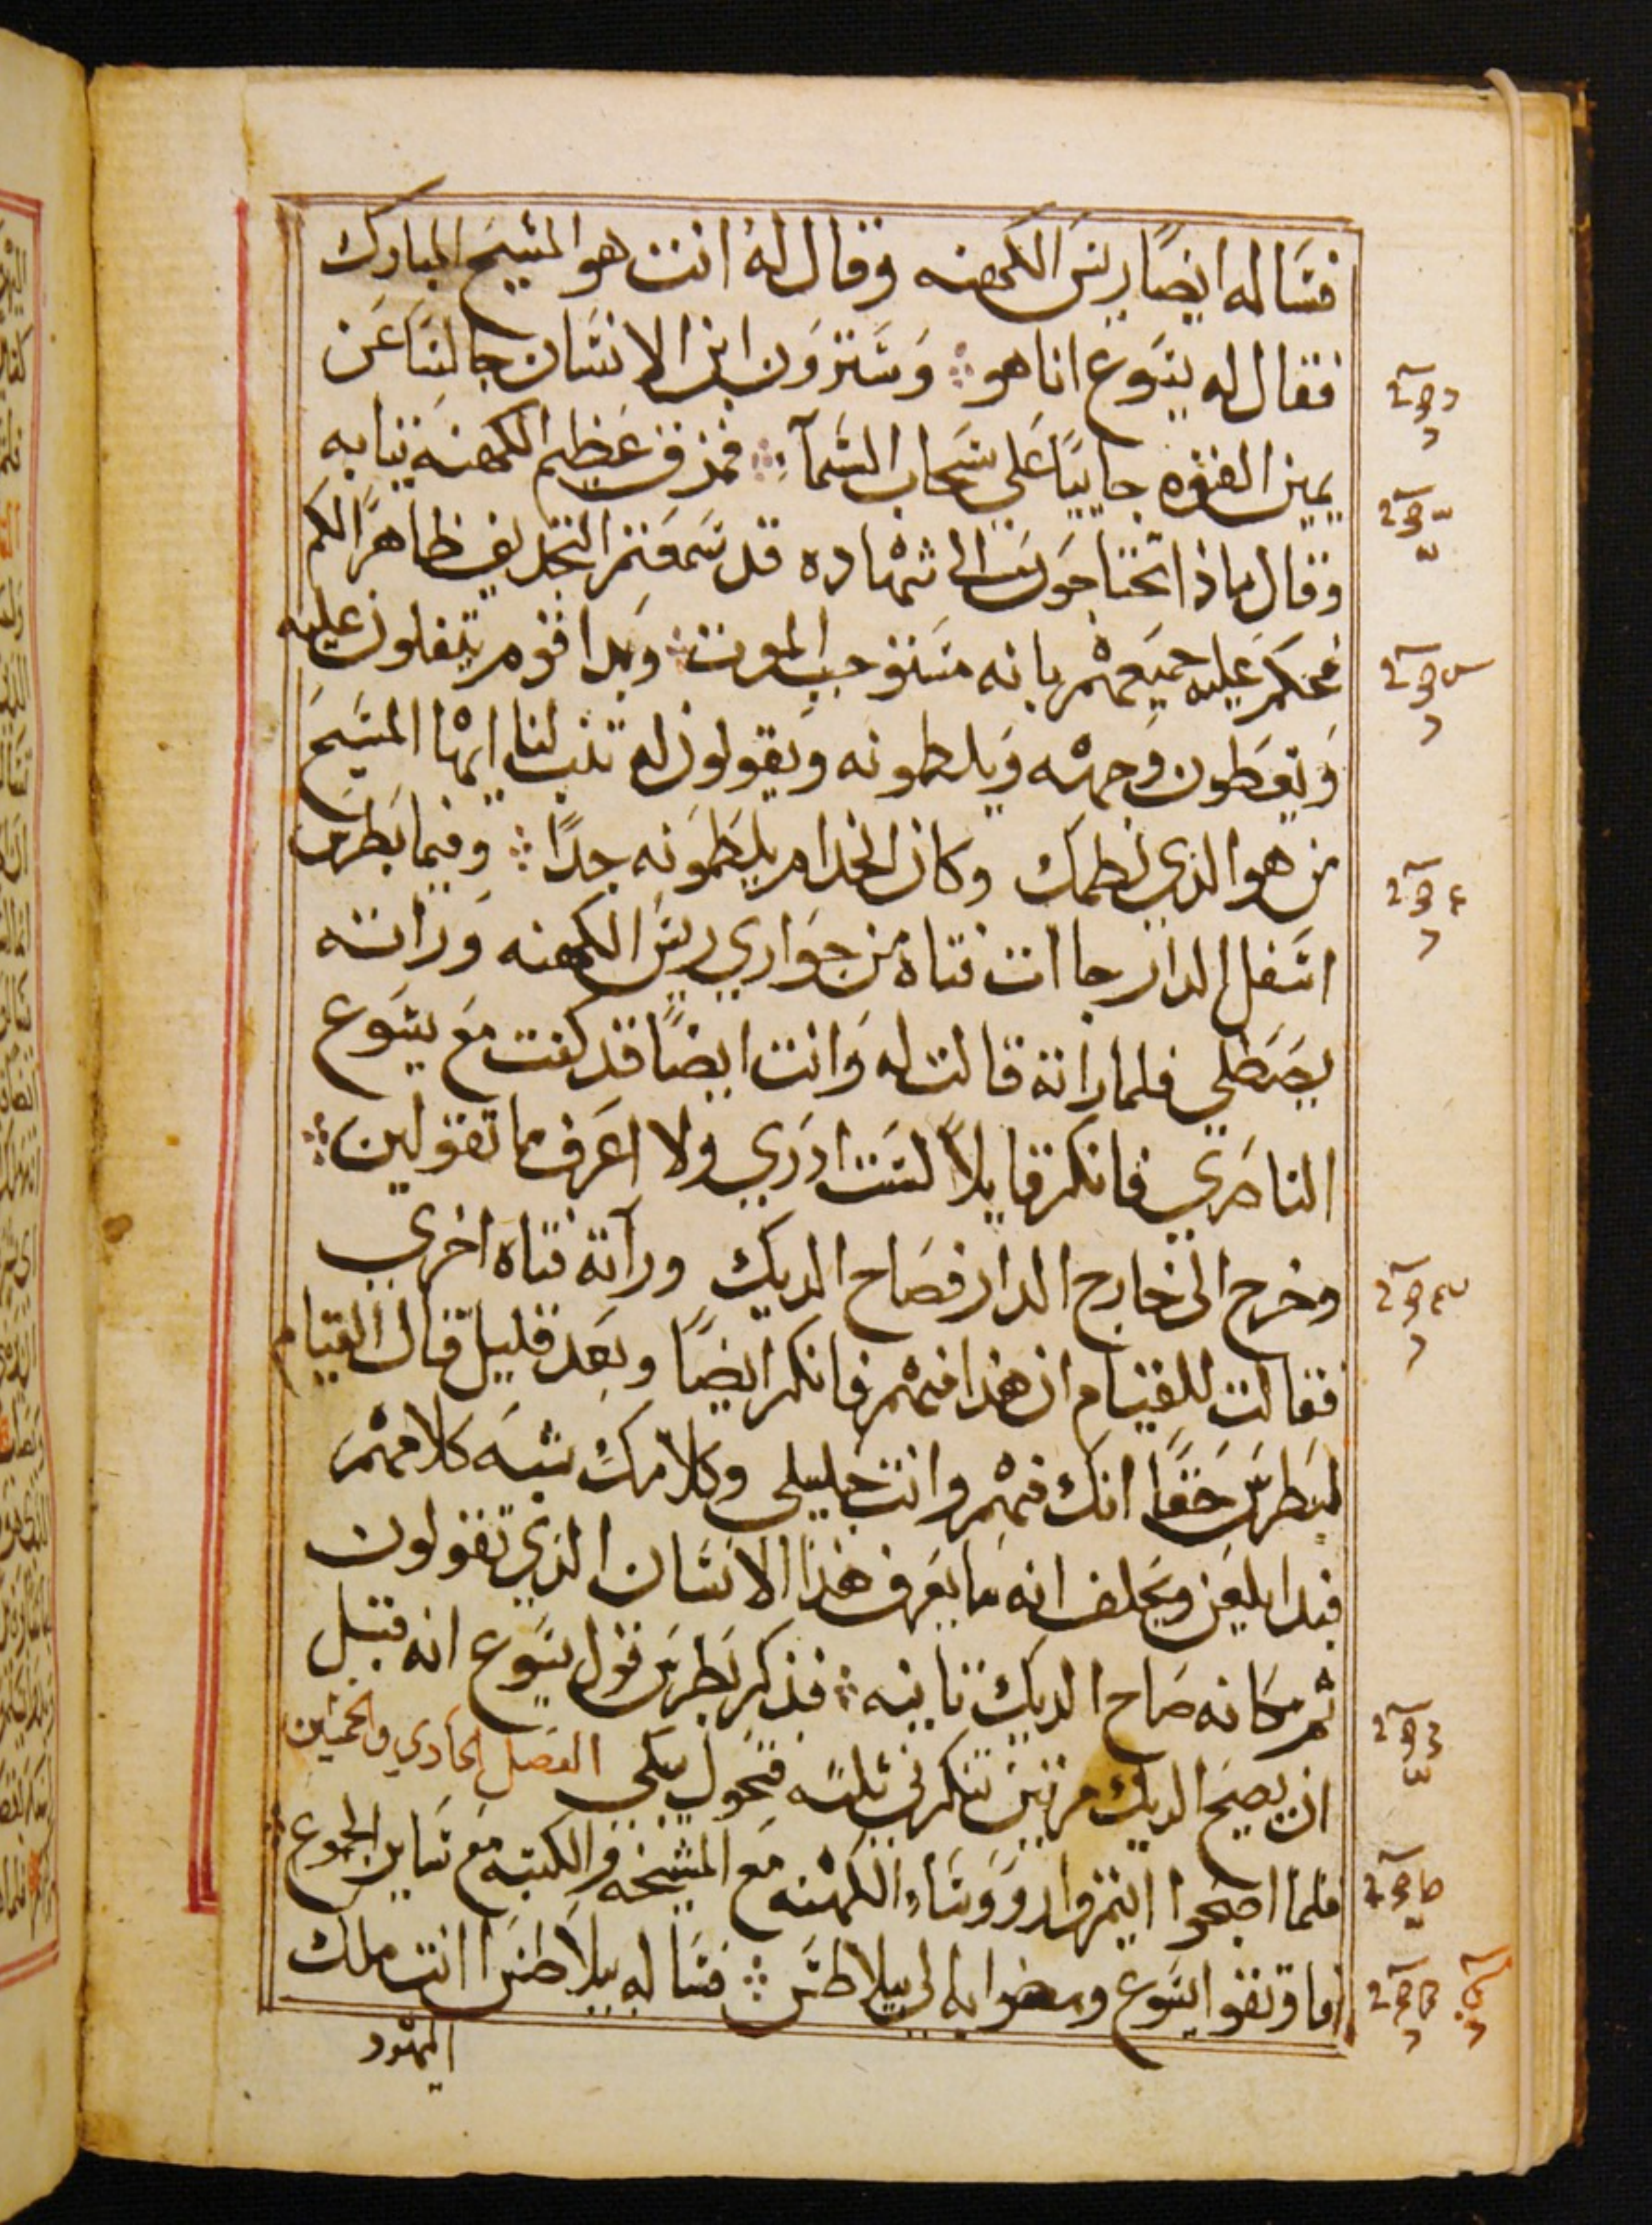 فساله ايضًا ريس الكهنه وقال لهُ انت هو المسيح المبارك
فقال له يسوع انا هو ⁘ وسترون ابن الانسان جالسًا عن
يمين القوه جاييًا على سحاب السمآ ⁘ فمزق عظيم الكهنة تيابه
وقال ماذا تحتاجون الى شهاده قد سمعتم التجديف ظاهرًا لكم
فحكم عليه جميعهم بانه مستوجب الموت ⁘ وبدا قوم يتفلون عليه
ويغطون وجهه ويلطمونه ويقولون له تنب لنا ايها المسيح
من هو الذي لطمك وكان الخدام يلطمونه جدًا ⁘ وفيما بطرس
اسفل الدار جاات فتاه من جواري ريس الكهنه وراته
يصطلي فلما راته قالت له وانت ايضًا قد كنت مع يسوع
الناصري فانكر قايلاً لست ادري ولا اعرف ما تقولين ⁘
وخرج الى خارج الدار فصاح الديك وراته فتاه اخري
فقالت للقيام ان هذا منهم فانكر ايضًا وبعد قليل قال القيام
لبطرس حقًا انك منهم وانت جليلي وكلامك شبه كلامهم
فبدا يلعن ويحلف انه ما يعرف هذا الانسان الذي تقولون
ثم مكانه صاح الديك تانيه ⁘ فذكر بطرس قول يسوع انه قبل
ان يصيح الديك مرتين تنكرني تلته فتحول يبكي الفصل الحادي والخمسين
فلما اصبحوا ايتمروا رووسا الكهنه مع المشيخه والكتبه مع ساير الجموع
اما وتقوا يسوع ومضوا به الى بيلاطس ⁘ فساله بيلاطس انت ملك
اليهود